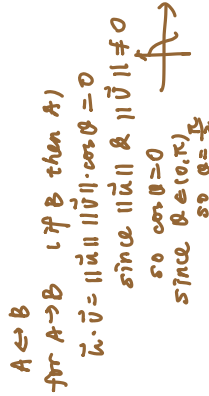 A ⟺ B
for A → B (if B then A)
u⃗ · v⃗ = ||u⃗|| ||v⃗|| · cos θ = 0
since ||u⃗|| & ||v⃗|| ≠ 0
so cos θ = 0
since θ ∈ (0, π)
so θ = π/2